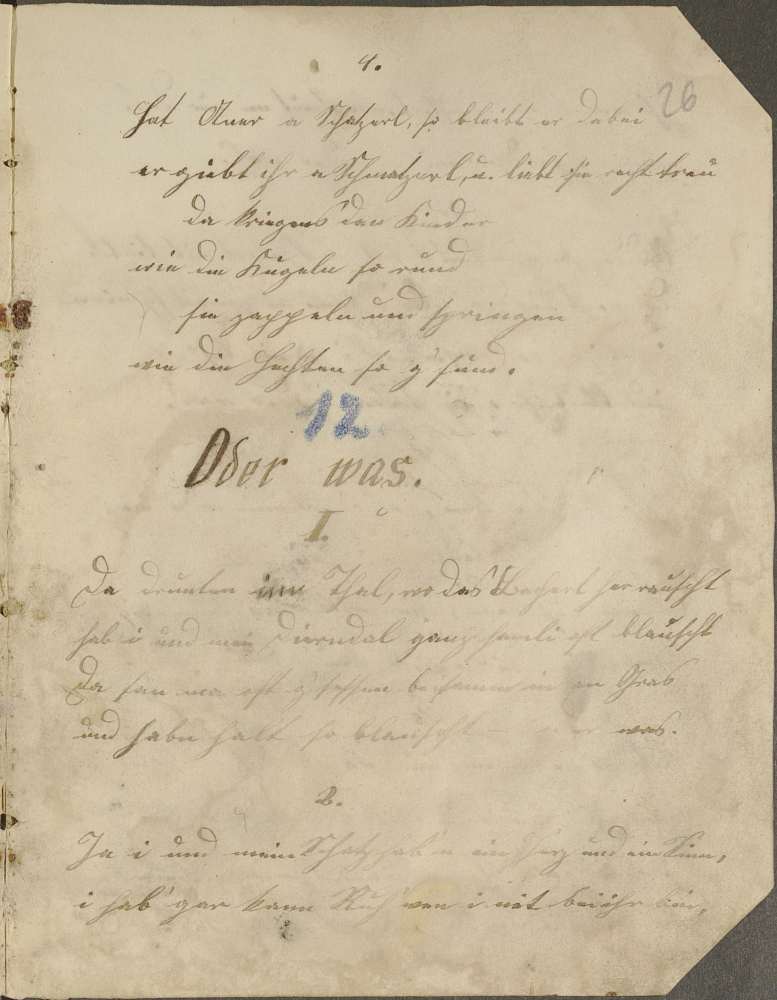 4.
26
Hat Aner a Schatzerl, so bleibt er dabei
er giebt ihr a Schmatzerl, u. liebt sie recht treu
da kriegens dan Kinder
wie die Kugeln so rund
sie zappeln und springen
wie die Hechten so g'sund.
12
Oder was.
I.
Da drunten im Thal, wo das Bacherl her rauscht
hab i und mein Dierndal ganz hamli oft blauscht
Da san ma oft g'sessen beisamm in an Gras
und habn halt so blauscht was.
2.
Ja i und mein Schatz hab'n ein Herz und ein Sinn,
i hab' gar kann Ruh wen i nit bei ihr bin,